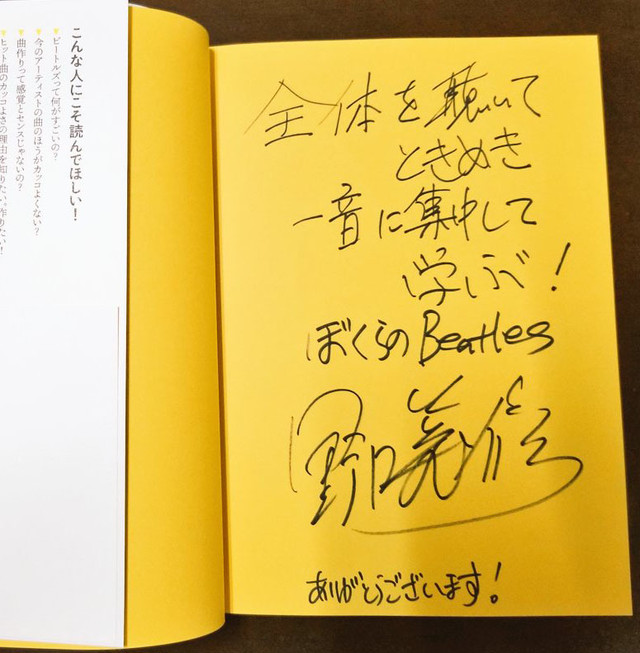 こんな人にこそ読んでほしい！
▼ビートルズって何がすごいの？
▼今のアーティストの曲のほうがカッコよくない？
▼曲作りって感覚とセンスじゃないの？
▼ヒット曲のカッコよさの理由を知りたい、作りたい！
全体を聴いて
ときめき
一音に集中して
学ぶべ！
ぼくらのBeatles
野口義修
ありがとうございます！